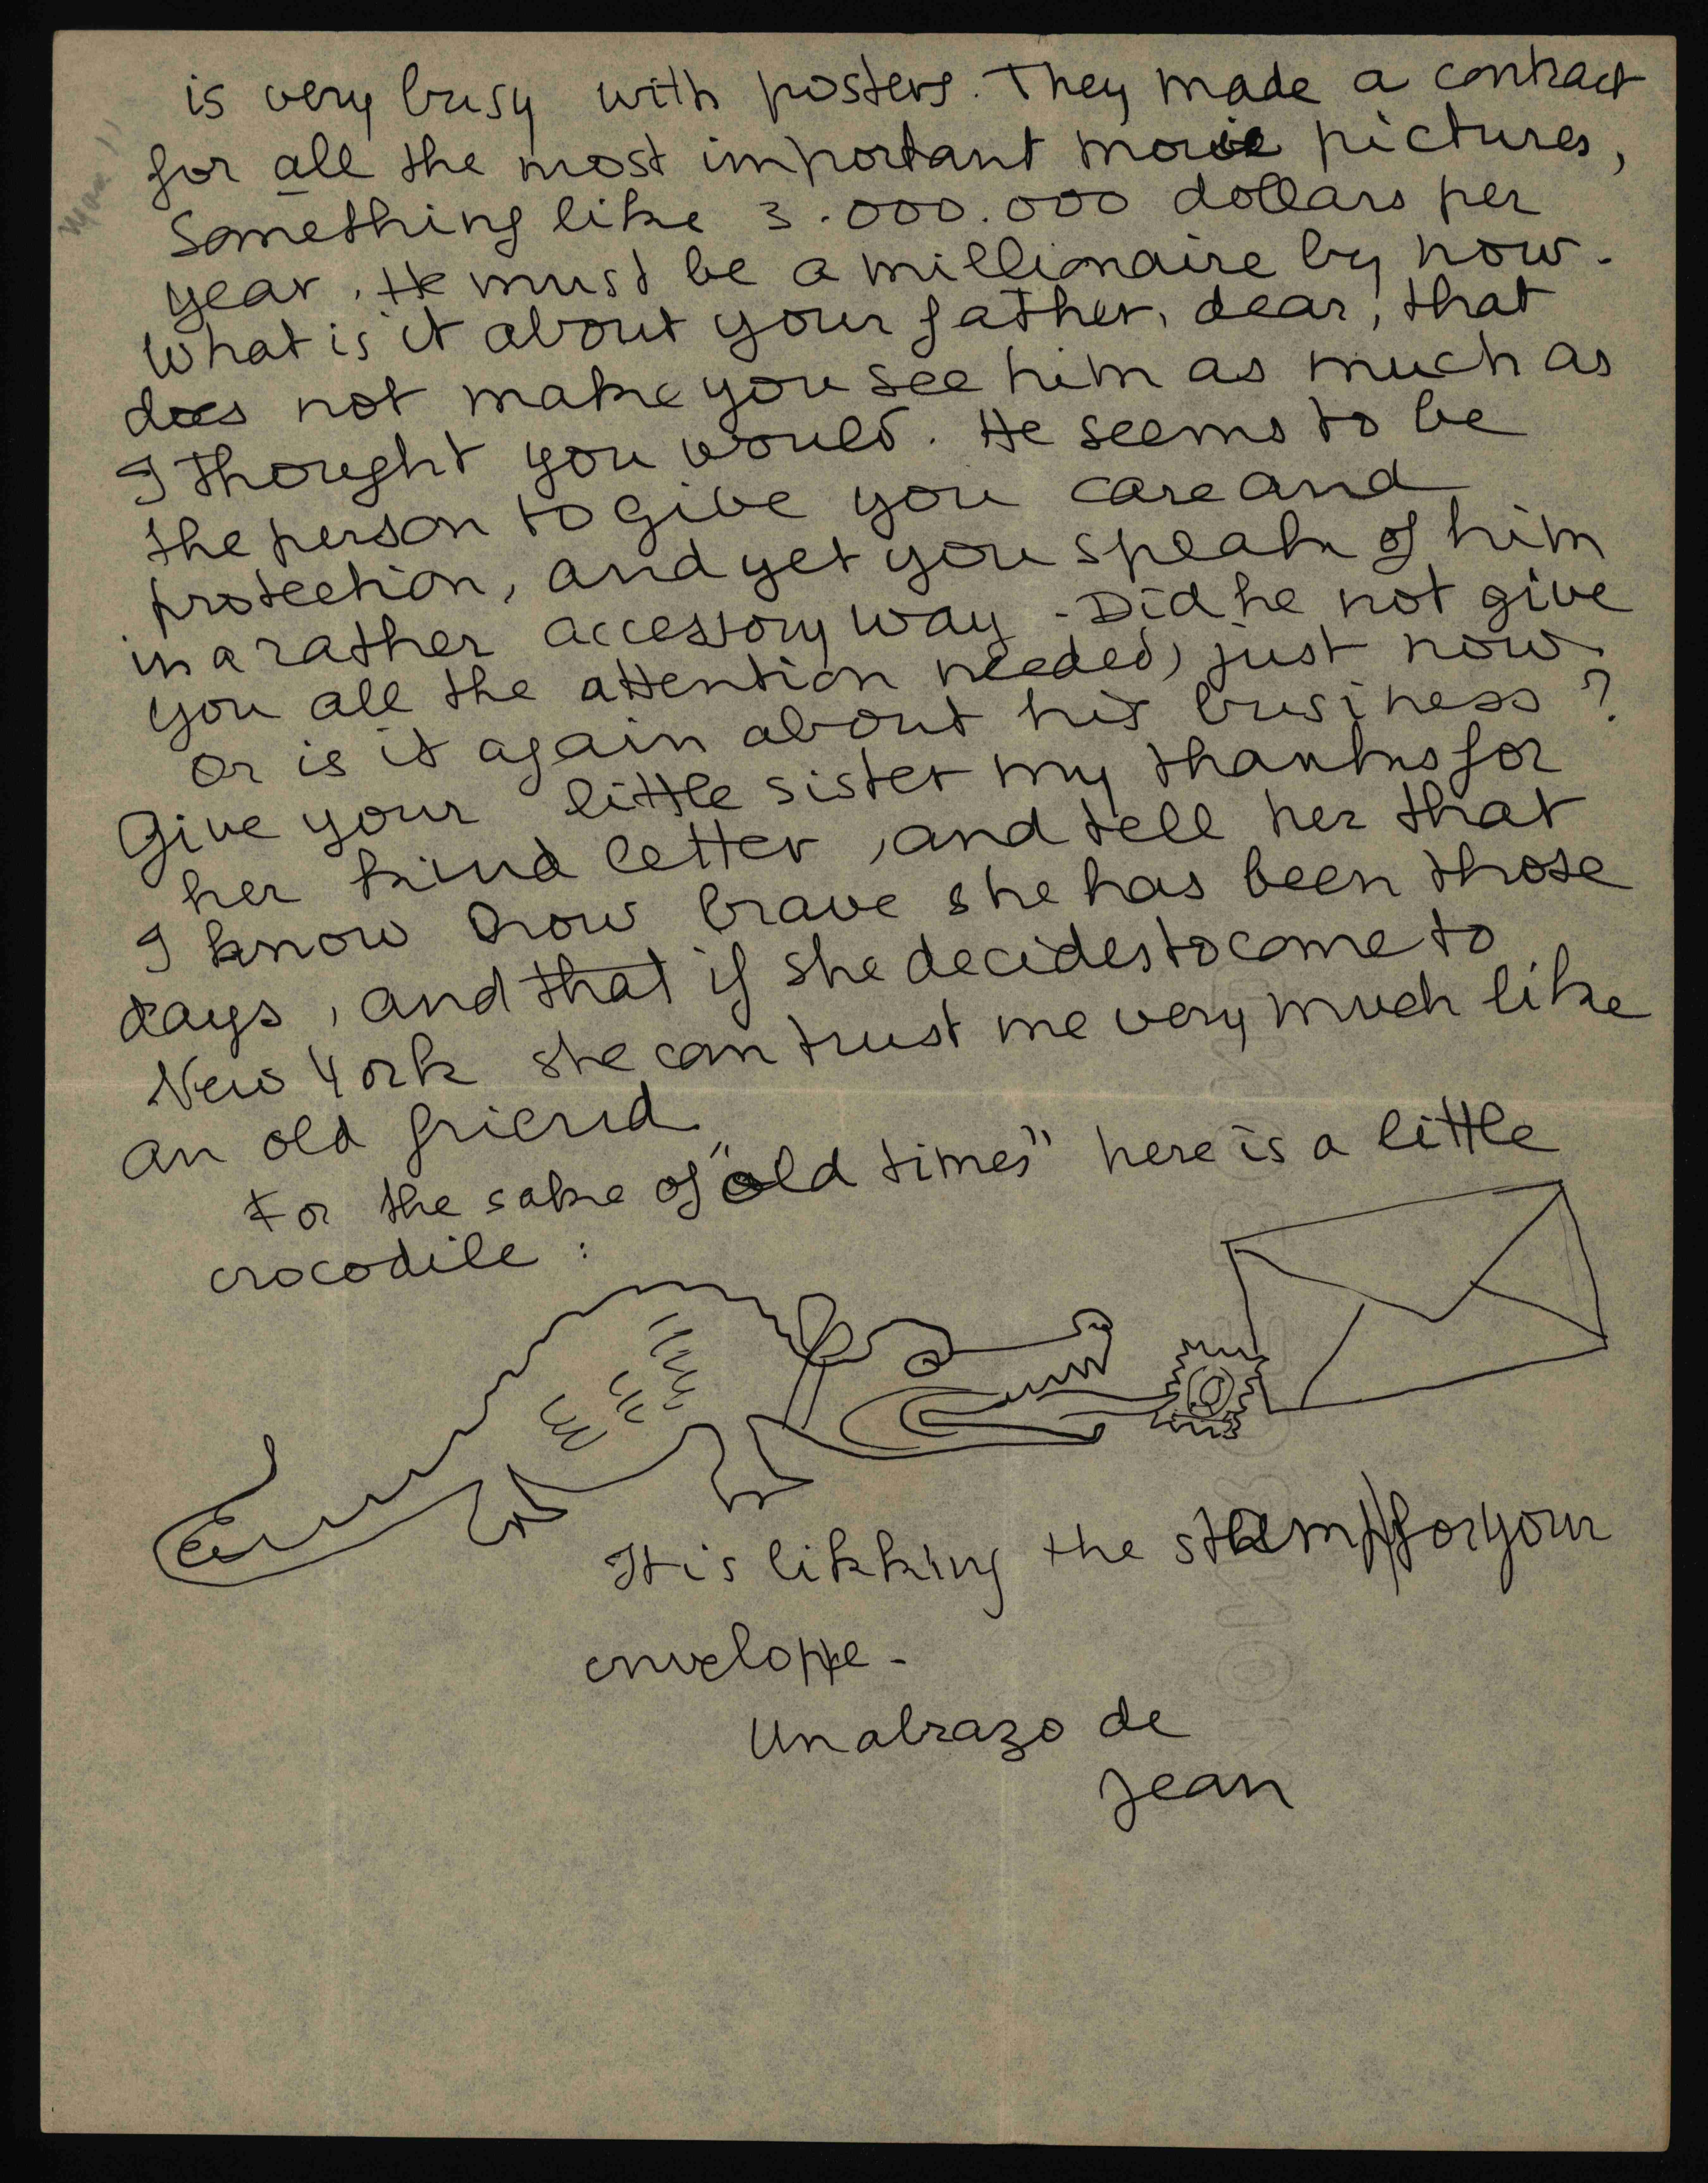 is very busy with posters. They made a contract
for all the most important movie pictures,
Something like 3.000.000 dollars per
year. He must be a millionaire by now.
What is it about your father, dear, that
does not make you see him as much as
I thought you would. He seems to be
the person to give you care and
protection, and yet you speak of him
in a rather accessory way. Did he not give
you all the attention needed, just now.
Or is it again about his business?
Give your little sister my thanks for
her kind letter, and tell her that
I know how brave she has been those
days, and that if she decides to come to
New York she can trust me very much like
an old friend.
For the sake of "old times" here is a little
crocodile:
It is likking the stamp for your
enveloppe-
Un abrazo de
Jean